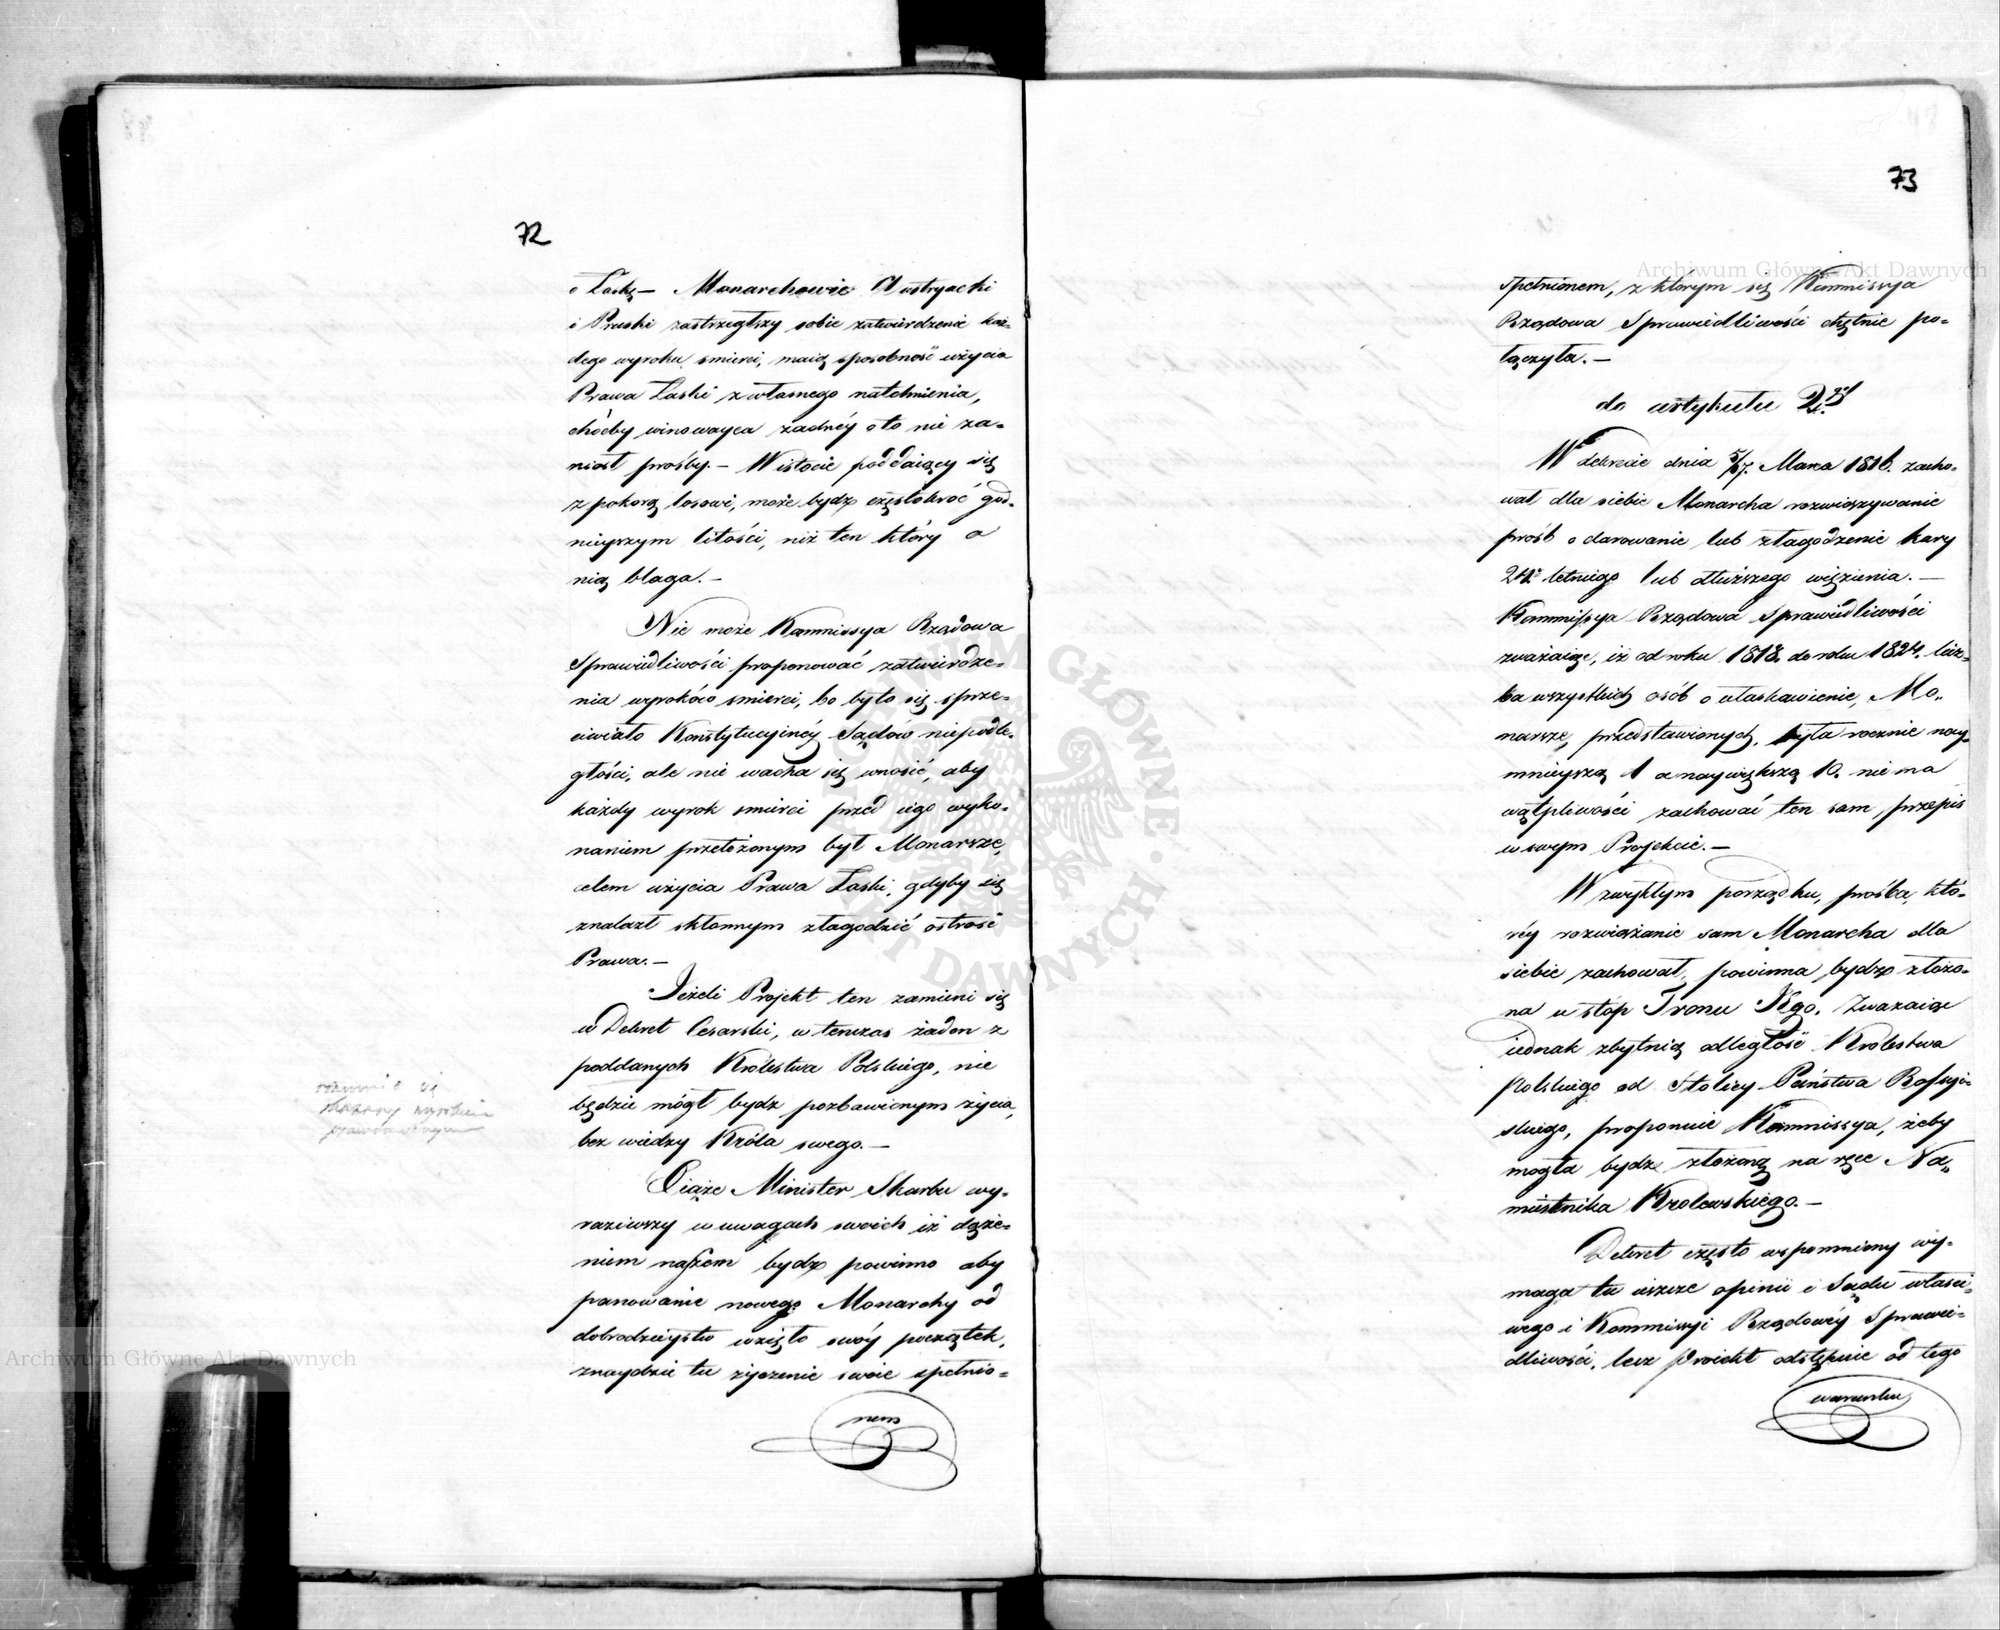 72
o Łaskę — Monarchowie Austryacki
i Pruski zastrzegłszy sobie zatwierdzenie każ-
dego wyroku śmierci, maią sposobność użycia
Prawa Łaski z własnego natchnienia,
choćby winowayca żadnéy o to nie za-
niósł prośby. — W istocie poddaiący się
z pokorą losowi, może bydź częstokroć god-
nieyszym litości, niż ten który o
nią błaga. —
Nie może Kommissya Rządowa
Sprawiedliwości proponować zatwierdze-
nia wyroków śmierci, bo było się sprze-
ciwiało Konstytucyinéy Sądów niepodle-
głości, ale nie wacha się wnosić, aby
każdy wyrok śmierci przed iego wyko-
naniem przełożonym był Monarsze,
celem użycia Prawa Łaski, gdyby się
znalazł skłonnym złagodzić ostrość
Prawa. —
Jeżeli Projekt ten zamieni się
w Dekret Cesarski, w tenczas żaden z
poddanych Królestwa Polskiego, nie
będzie mógł bydź pozbawionym życia,
bez wiedzy Króla swego. —
rozumie się
skazany wyrokiem
prawomocnym
Xiąże Minister Skarbu wy-
raziwszy w uwagach swoich iż dąże-
niem naszem bydź powinno aby
panowanie nowego Monarchy od
dobrodzieystw wzięło swóy początek,
znaydzie tu życzenie swoie spełnio-
nem
73
spełnionem, z którym się Kommissya
Rządowa Sprawiedliwości chętnie po-
łączyła. —
do artykułu 2go
W dekrecie dnia 5/17. Marca 1816. zacho-
wał dla siebie Monarcha rozwiązywanie
próśb o darowanie lub złagodzenie kary
24o letniego lub dłuższego więzienia. —
Kommissya Rządowa Sprawiedliwości
zważaiąc, iż od roku 1818. do roku 1824. licz-
ba wszystkich osób o ułaskawienie, Mo-
narsze, przedstawionych, była rocznie nay-
mnieyszą 1 a naywiększą 10. nie ma
wątpliwości zachować ten sam przepis
w swym Projekcie. —
W zwykłym porządku, prośba, któ-
réy rozwiązanie sam Monarcha dla
siebie zachował, powinna bydź złożo-
na u stóp Tronu Jego. Zważaiąc
iednak zbytnią odległość Królestwa
Polskiego od Stolicy Państwa Rossyi-
skiego, proponuie Kommissya, żeby
mogła bydź złożoną na ręce Na-
miestnika Królewskiego. —
Dekret często wspomniony wy-
maga tu ieszcze opinii i Sądu właści-
wego i Kommissyi Rządowéy Sprawie-
dliwości, lecz Proiekt odstępuie od tego
warunku
Archiwum Główne Akt Dawnych
Archiwum Główne Akt Dawnych
ARCHIWUM GŁÓWNE AKT DAWNYCH